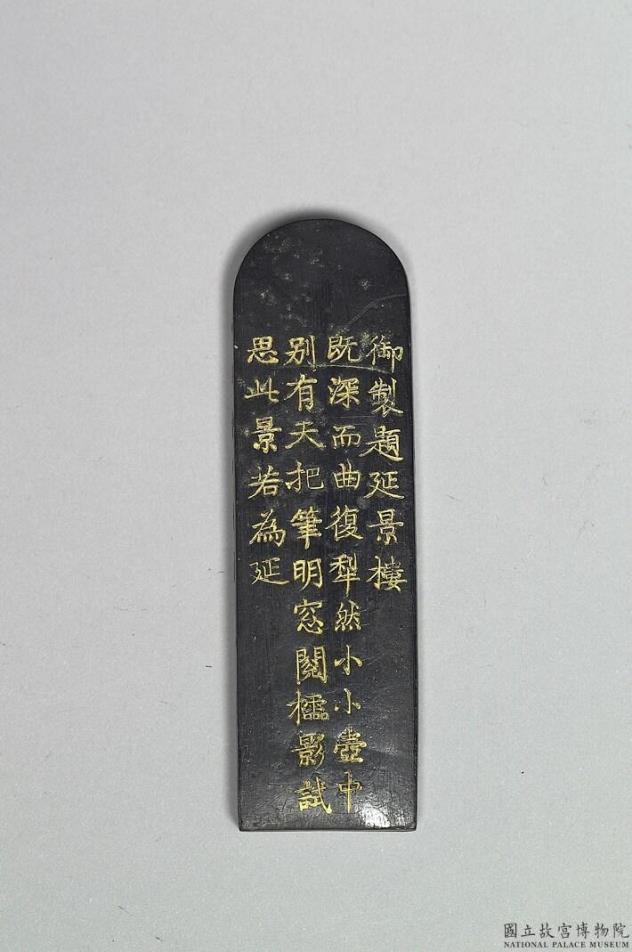 御製題延景樓
既深而曲復犂然小小壺中
别有天把筆明窓閱櫺影試
思此景若為延
國立故宮博物院
NATIONAL PALACE MUSEUM